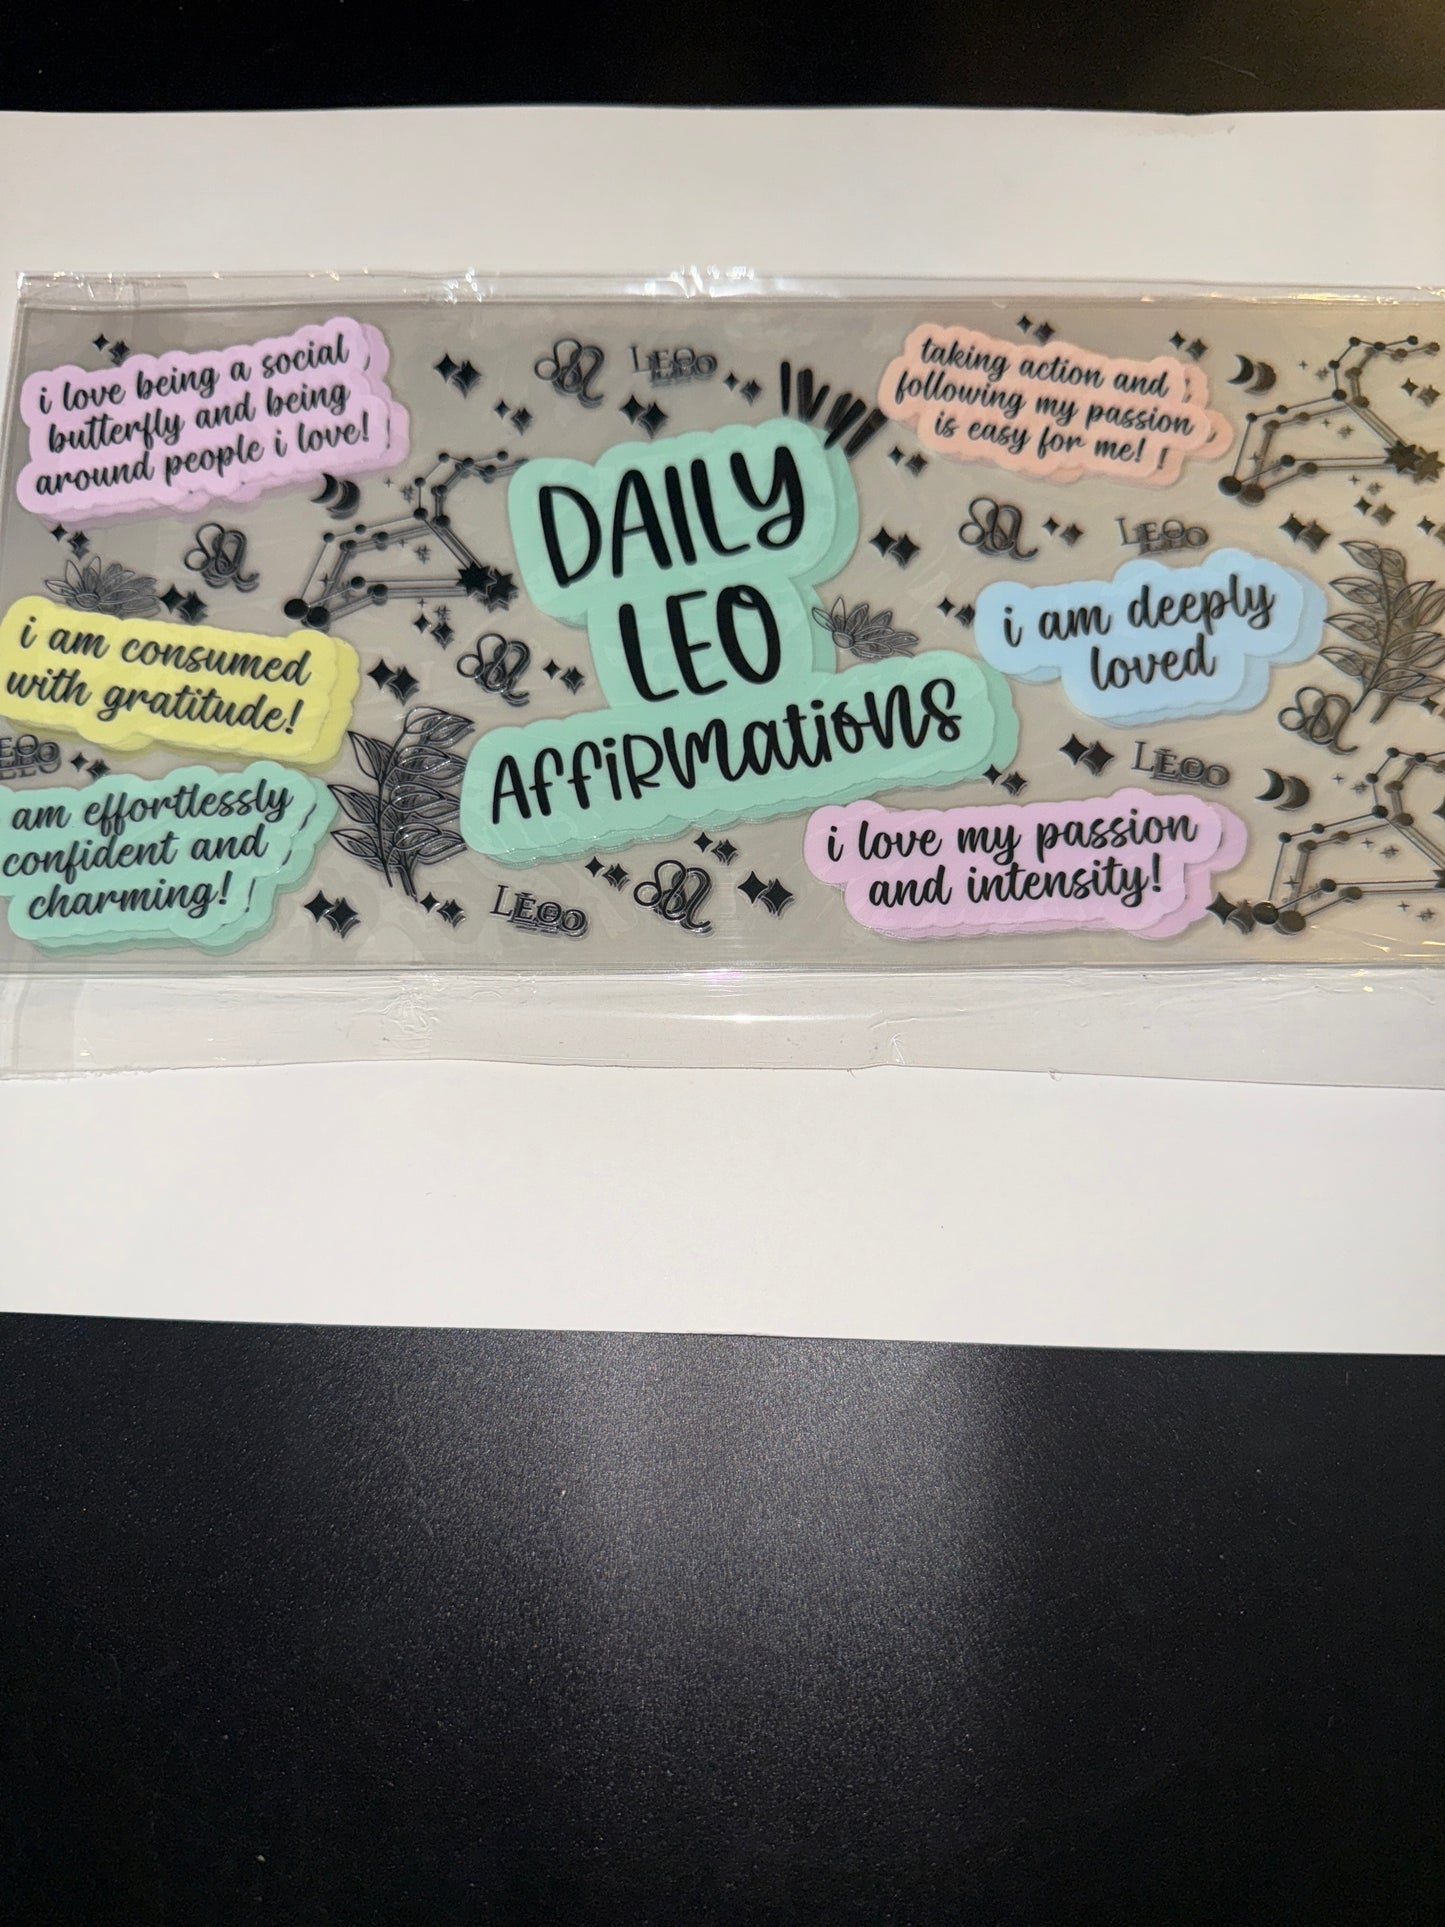 i love being a social
butterfly and being
around people i love!
LEO
taking action and
following my passion
is easy for me!
DAILY
LEO
AFFIRMATIONS
LEO
i am deeply
loved
i am consumed
with gratitude!
LEO
am effortlessly
confident and
charming!
LEO
i love my passion
and intensity!
LEO